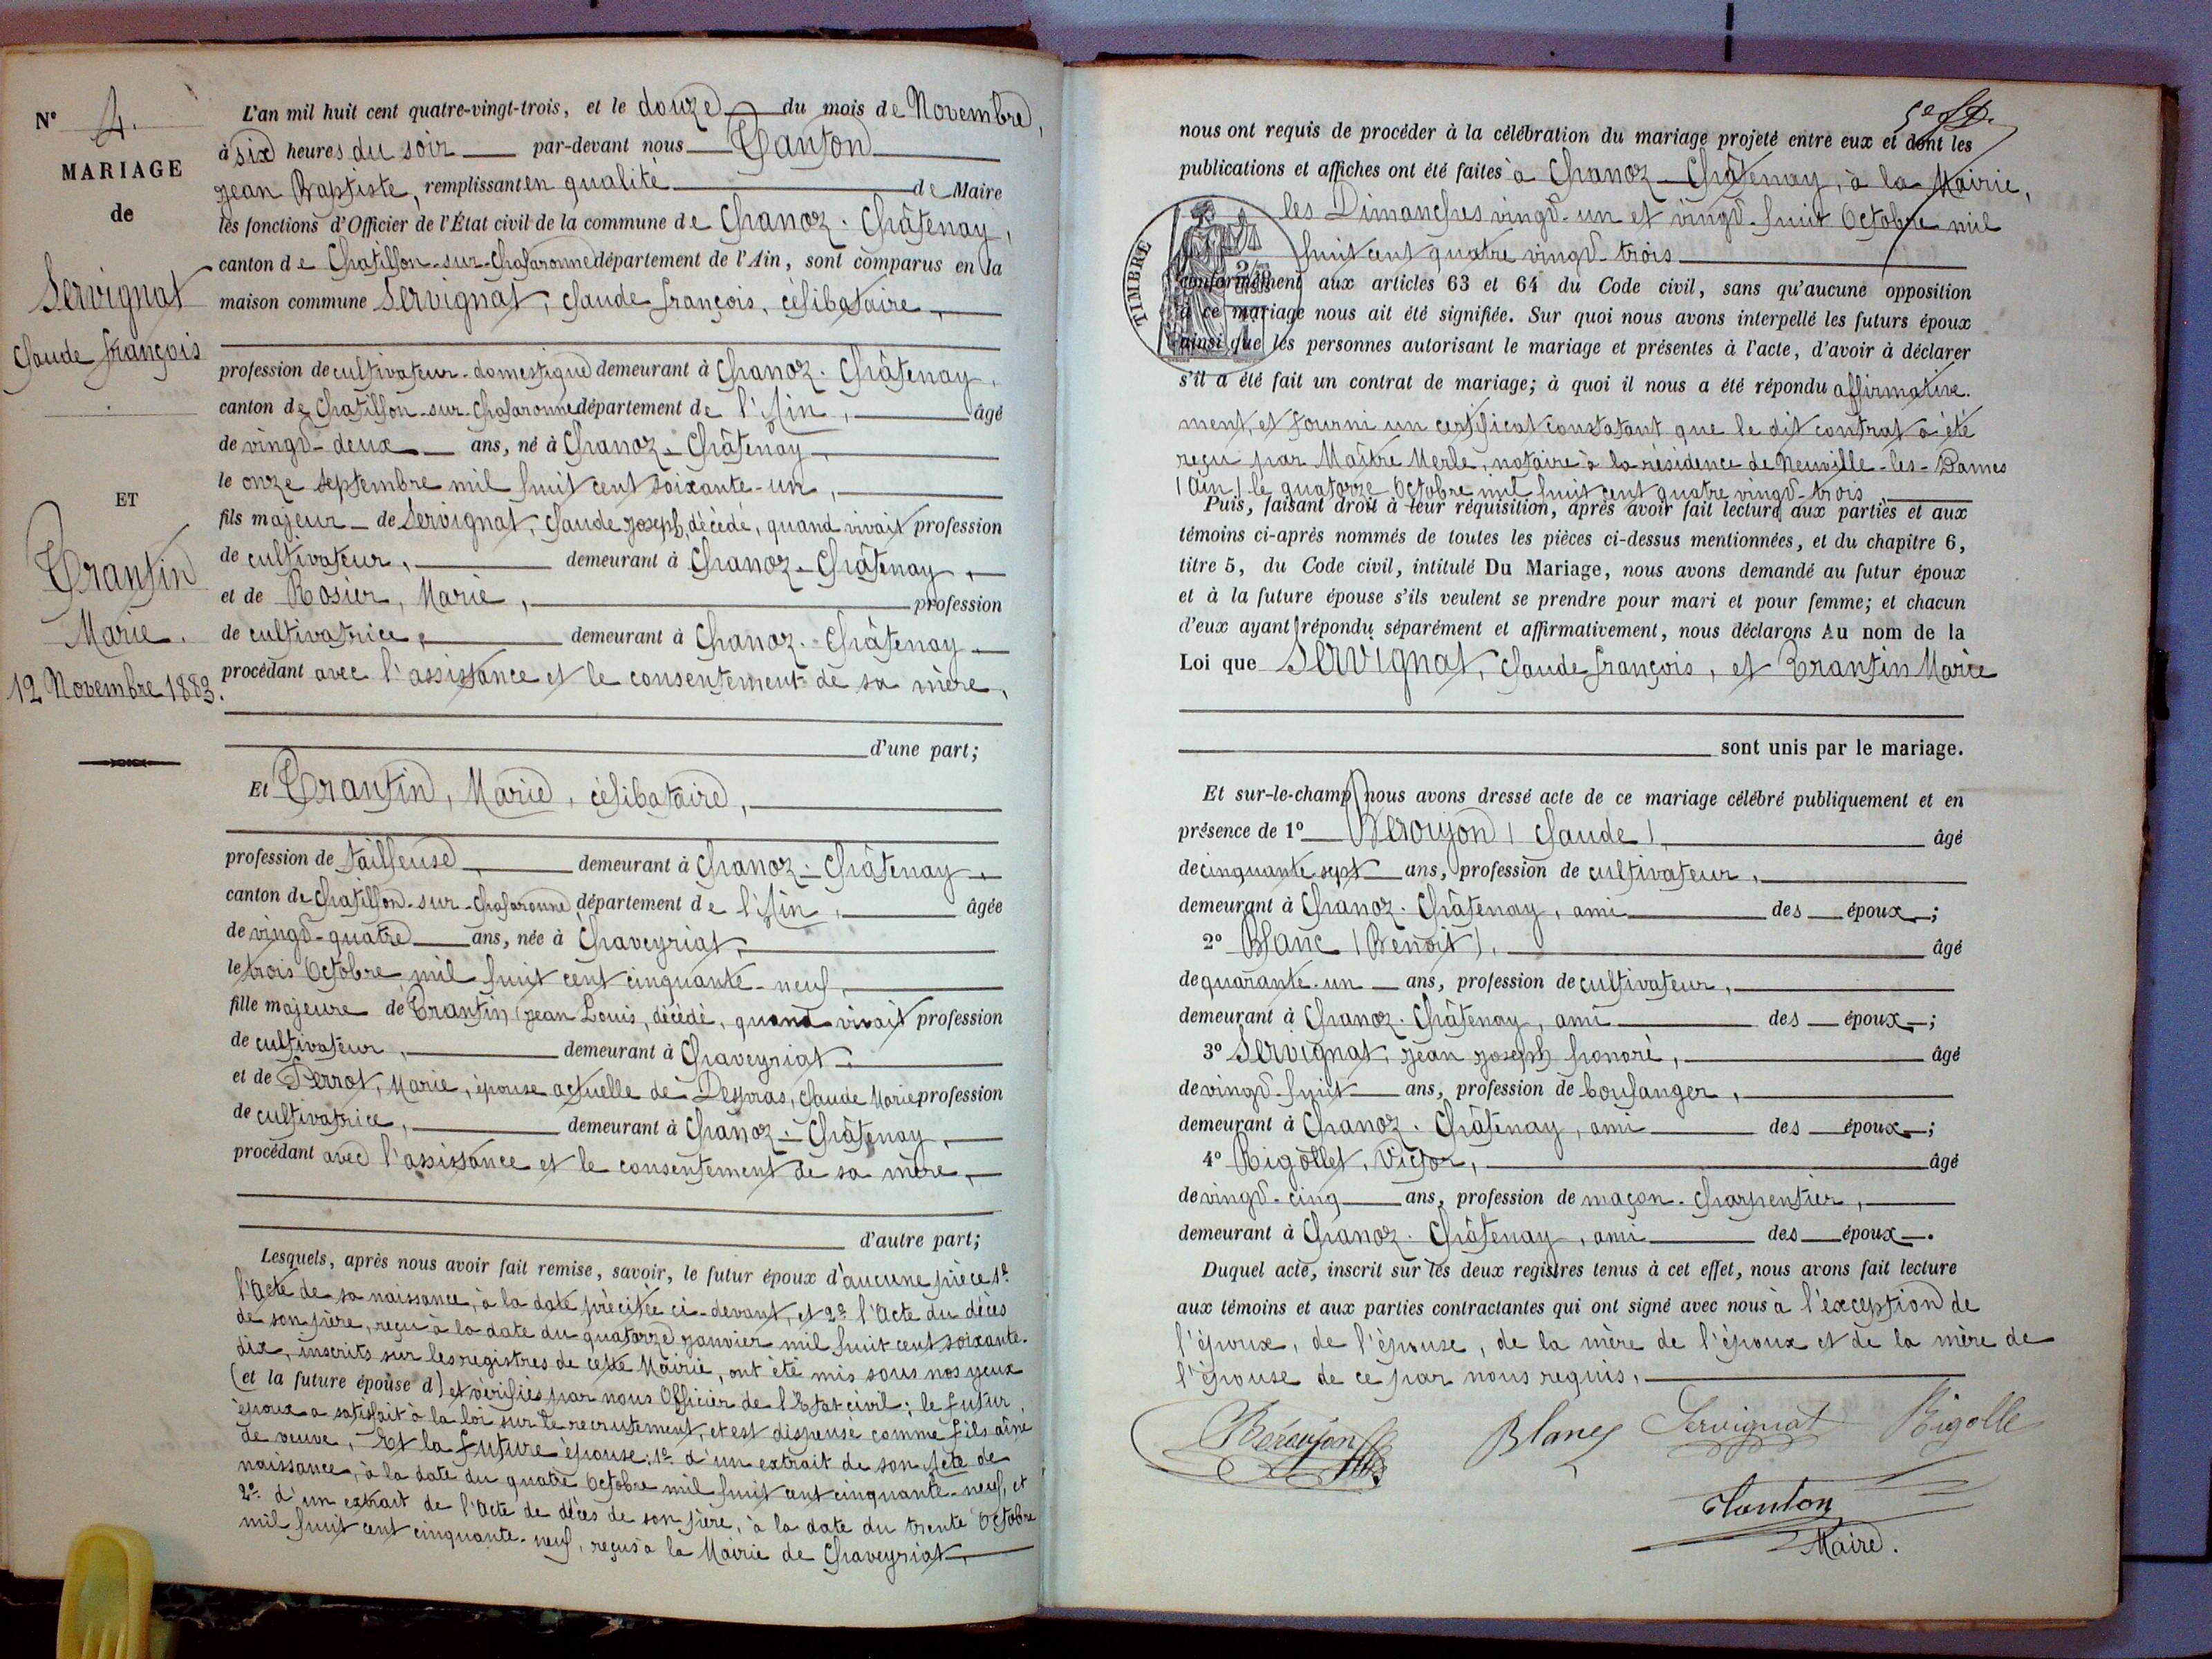 N° 4.
MARIAGE
de
Servignat
Claude François
ET
Trantin
Marie.
12 Novembre 1883.
L'an mil huit cent quatre-vingt-trois, et le douze du mois de Novembre,
à six heures du soir par-devant nous Tanton
Jean Baptiste, remplissant en qualité de Maire
les fonctions d'Officier de l'État civil de la commune de Chanoz-Châtenay,
canton de Chatillon-sur-Chalaronne département de l'Ain, sont comparus en la
maison commune Servignat, Claude François, célibataire,
profession de cultivateur-domestique demeurant à Chanoz-Châtenay,
canton de Chatillon-sur-Chalaronne département de l'Ain, âgé
de vingt-deux ans, né à Chanoz-Châtenay,
le onze septembre mil huit cent soixante-un,
fils majeur de Servignat, Claude Joseph, décédé, quand vivait profession
de cultivateur, demeurant à Chanoz-Châtenay,
et de Rosier, Marie, profession
de cultivatrice, demeurant à Chanoz-Châtenay
procédant avec l'assistance et le consentement de sa mère,
d'une part;
Et Trantin, Marie, célibataire,
profession de tailleuse, demeurant à Chanoz-Châtenay,
canton de Chatillon-sur-Chalaronne département de l'Ain, âgée
de vingt-quatre ans, née à Chaveyriat,
le trois Octobre mil huit cent cinquante-neuf,
fille majeure de Trantin, Jean Louis, décédé, quand vivait profession
de cultivateur, demeurant à Chaveyriat,
et de Perrot, Marie, épouse actuelle de Despras, Claude Marie profession
de cultivatrice, demeurant à Chanoz-Châtenay,
procédant avec l'assistance et le consentement de sa mère,
d'autre part;
Lesquels, après nous avoir fait remise, savoir, le futur époux d'aucune pièce 1°
l'Acte de sa naissance, à la date précitée ci-devant, et 2° l'Acte du décès
de son père, reçu à la date du quatorze Janvier mil huit cent soixante-
dix, inscrits sur les registres de cette Mairie, ont été mis sous nos yeux
(et la future épouse d) et vérifiés par nous Officier de l'Etat civil; le futur
époux a satisfait à la loi sur le recrutement, et est dispensé comme fils aîné
de veuve, Et la future épouse: 1° d'un extrait de son Acte de
naissance, à la date du quatre Octobre mil huit cent cinquante-neuf, et
2° d'un extrait de l'Acte de décès de son père, à la date du trente Octobre
mil huit cent cinquante-neuf, reçus à la Mairie de Chaveyriat,
nous ont requis de procéder à la célébration du mariage projeté entre eux et dont les
publications et affiches ont été faites à Chanoz-Châtenay, à la Mairie,
les Dimanches vingt-un et vingt-huit Octobre mil
huit cent quatre vingt-trois
TIMBRE
conformément aux articles 63 et 64 du Code civil, sans qu'aucune opposition
à ce mariage nous ait été signifiée. Sur quoi nous avons interpellé les futurs époux
ainsi que les personnes autorisant le mariage et présentes à l'acte, d'avoir à déclarer
s'il a été fait un contrat de mariage; à quoi il nous a été répondu affirmative-
ment, et fourni un certificat constatant que le dit contrat a été
reçu par Maître Merle, notaire à la résidence de Neuville-les-Dames
(Ain) le quatorze Octobre mil huit cent quatre vingt-trois
Puis, faisant droit à leur réquisition, après avoir fait lecture aux parties et aux
témoins ci-après nommés de toutes les pièces ci-dessus mentionnées, et du chapitre 6,
titre 5, du Code civil, intitulé Du Mariage, nous avons demandé au futur époux
et à la future épouse s'ils veulent se prendre pour mari et pour femme; et chacun
d'eux ayant répondu séparément et affirmativement, nous déclarons Au nom de la
Loi que Servignat, Claude François, et Trantin Marie
sont unis par le mariage.
Et sur-le-champ nous avons dressé acte de ce mariage célébré publiquement et en
présence de 1° Béroujon (Claude), âgé
de cinquante sept ans, profession de cultivateur,
demeurant à Chanoz-Châtenay, ami des époux;
2° Blanc (Benoit), âgé
de quarante-un ans, profession de cultivateur,
demeurant à Chanoz-Châtenay, ami des époux;
3° Servignat, Jean Joseph honoré, âgé
de vingt-huit ans, profession de boulanger,
demeurant à Chanoz-Châtenay, ami des époux;
4° Rigollet, Victor, âgé
de vingt-cinq ans, profession de maçon-charpentier,
demeurant à Chanoz-Châtenay, ami des époux.
Duquel acte, inscrit sur les deux registres tenus à cet effet, nous avons fait lecture
aux témoins et aux parties contractantes qui ont signé avec nous à l'exception de
l'époux, de l'épouse, de la mère de l'époux et de la mère de
l'épouse de ce par nous requis,
Béroujon Blanc Servignat Rigolle
Tanton
Maire.